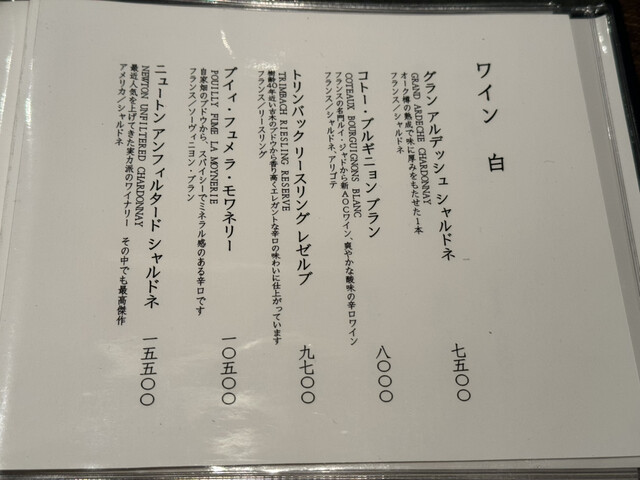 ワイン 白
グラン アルデッシュ シャルドネ 七五〇〇
GRAND ARDECHE CHARDONNAY
オーク樽の熟成で味に厚みをもたせた1本
フランス／シャルドネ
コトー・ブルギニョン ブラン 八〇〇〇
COTEAUX BOURGUIGNONS BLANC
フランスの名門ルイ・ジャドから新AOCワイン、爽やかな酸味の辛口ワイン
フランス／シャルドネ、アリゴテ
トリンバック リースリング レゼルブ 九七〇〇
TRIMBACH RIESLING RESERVE
樹齢40年近い古木のブドウから香り高くエレガントな辛口の味わいに仕上がっています
フランス／リースリング
プイィ・フュメ ラ・モワネリー 一〇五〇〇
POUILLY FUME LA MOYNERIE
自家畑のブドウから、スパイシーでミネラル感のある辛口です
フランス／ソーヴィニヨン・ブラン
ニュートン アンフィルタード シャルドネ 一五五〇〇
NEWTON UNFILTERED CHARDONNAY
最近人気を上げてきた実力派のワイナリー その中でも最高傑作
アメリカ／シャルドネ